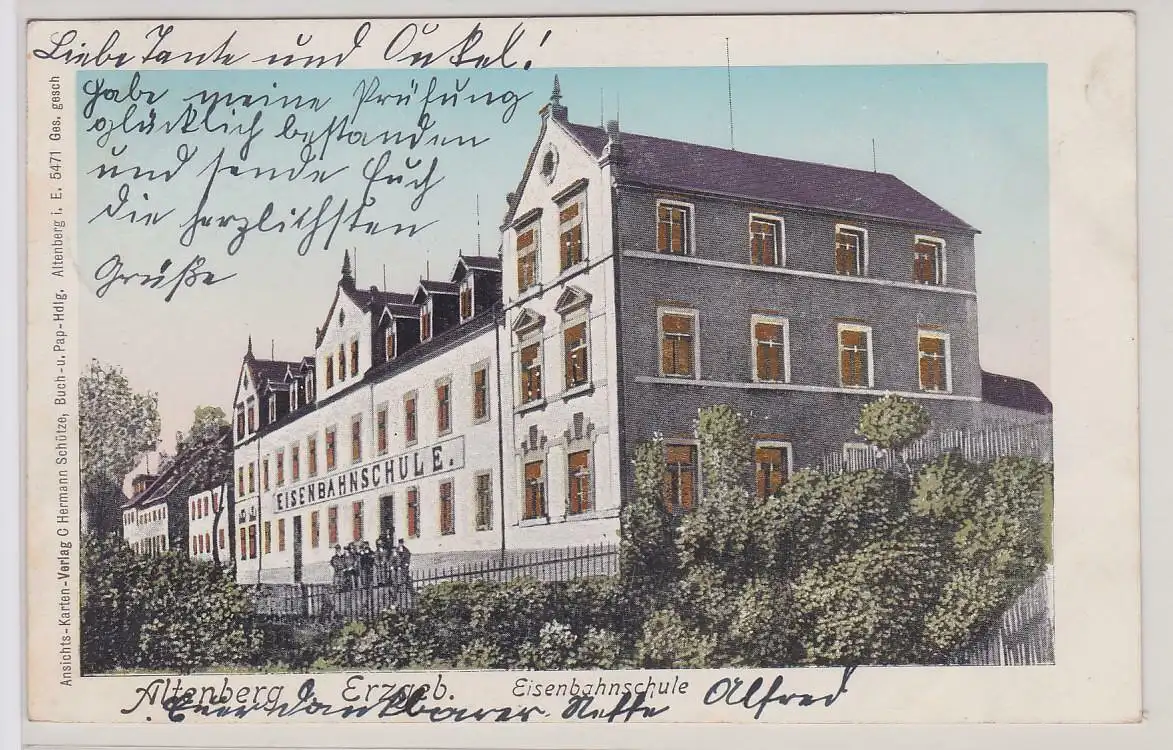 Liebe Tante und Onkel!
Habe meine Prüfung
glücklich bestanden
und sende Euch
die herzlichsten
Grüße
EISENBAHNSCHULE.
Ansichts-Karten-Verlag C Hermann Schütze, Buch- u. Pap-Hdlg. Altenberg i. E. 5471 Ges. gesch
Altenberg i. Erzgeb. Eisenbahnschule
Euer dankbarer Neffe Alfred